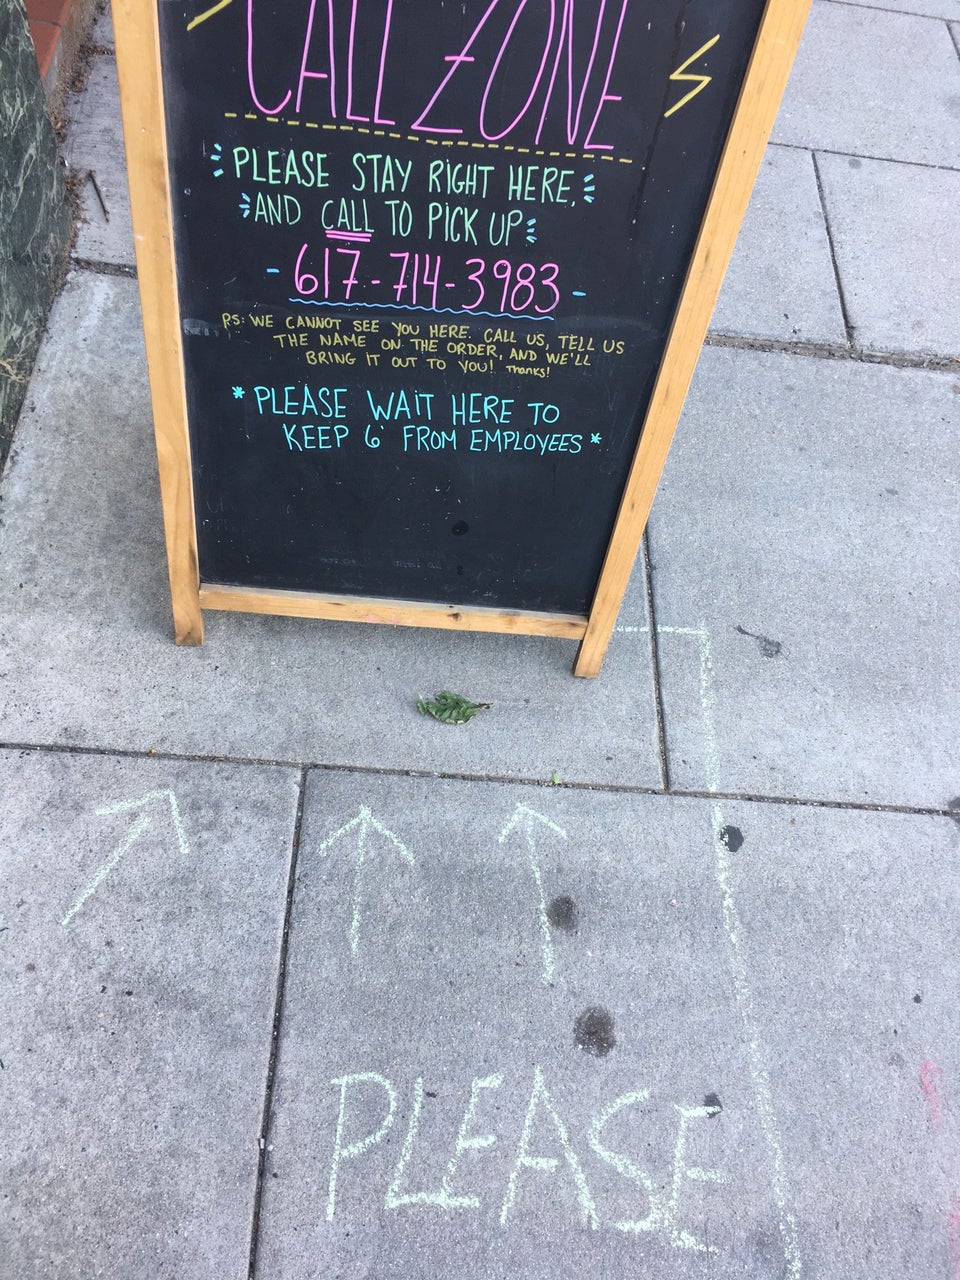 CALL ZONE
PLEASE STAY RIGHT HERE,
AND CALL TO PICK UP
-617-714-3983-
PS: WE CANNOT SEE YOU HERE. CALL US, TELL US
THE NAME ON THE ORDER, AND WE'LL
BRING IT OUT TO YOU! Thanks!
*PLEASE WAIT HERE TO
KEEP 6' FROM EMPLOYEES*
PLEASE